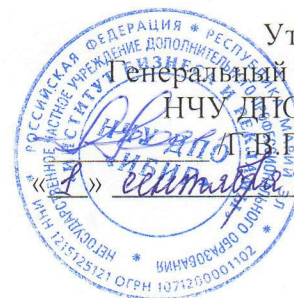 Ут
Генеральный
НЧУ ДПО
/Т.В.
«1» сентября
РОССИЙСКАЯ ФЕДЕРАЦИЯ * РЕСПУ
НЕГОСУДАРСТВЕННОЕ ЧАСТНОЕ УЧРЕЖДЕНИЕ ДОПОЛНИТЕЛЬНОГО
ОБРАЗОВАНИЯ
ИНСТИТУТ БИЗНЕС
НЧУ ДПО
ИНН 1215125121 ОГРН 1071200001102 *